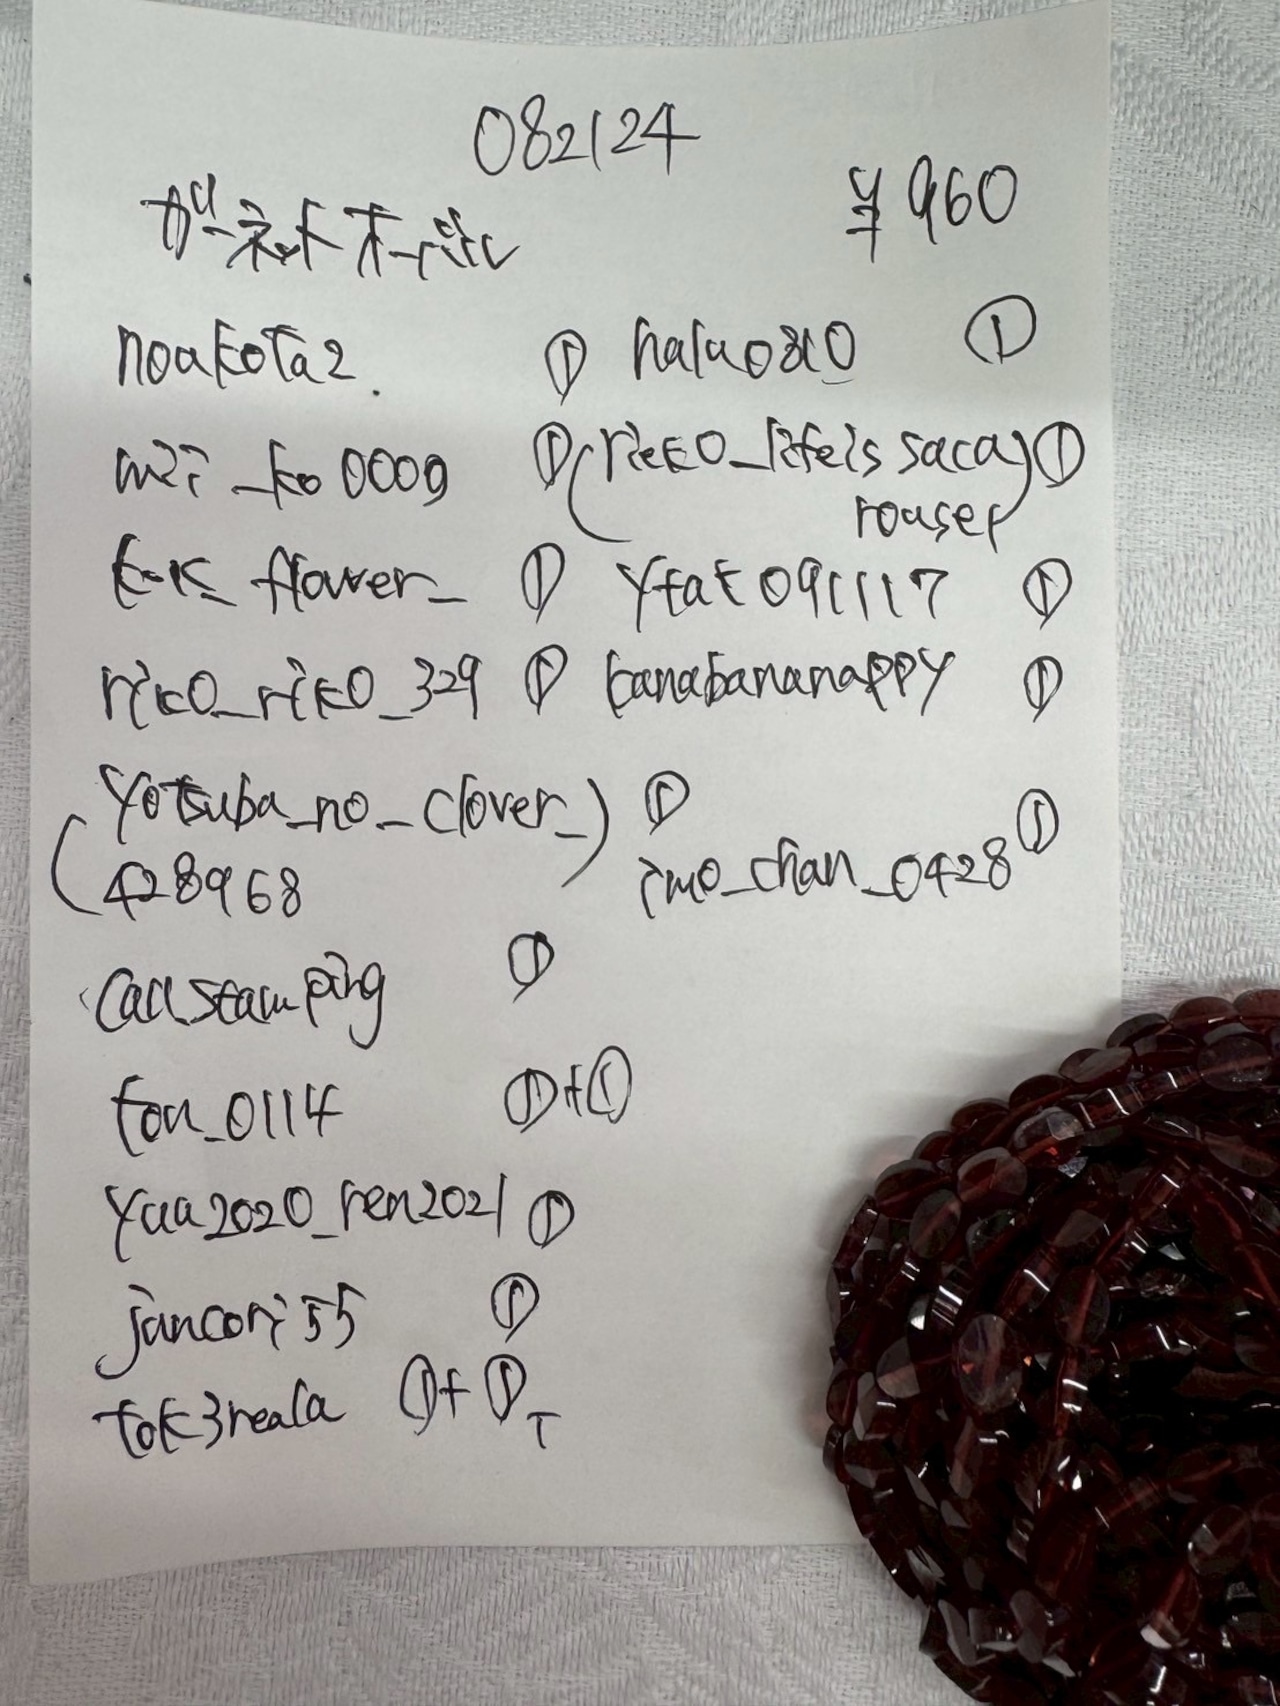 082124
ガーネットオーバル ¥960
noakota2 ① halu0810 ①
mii_ko0009 ① (rieko_lifeissaca) ①
rouser
k-k_flower_ ① yfat091117 ①
riko_riko_329 ① banabananappy ①
(yotsuba_no_clover_) ①
428968 imo_chan_0428 ①
callstamping ①
ton_0114 ①+①
yaa2020_ren2021 ①
jancori55 ①
tok3reala ①+①